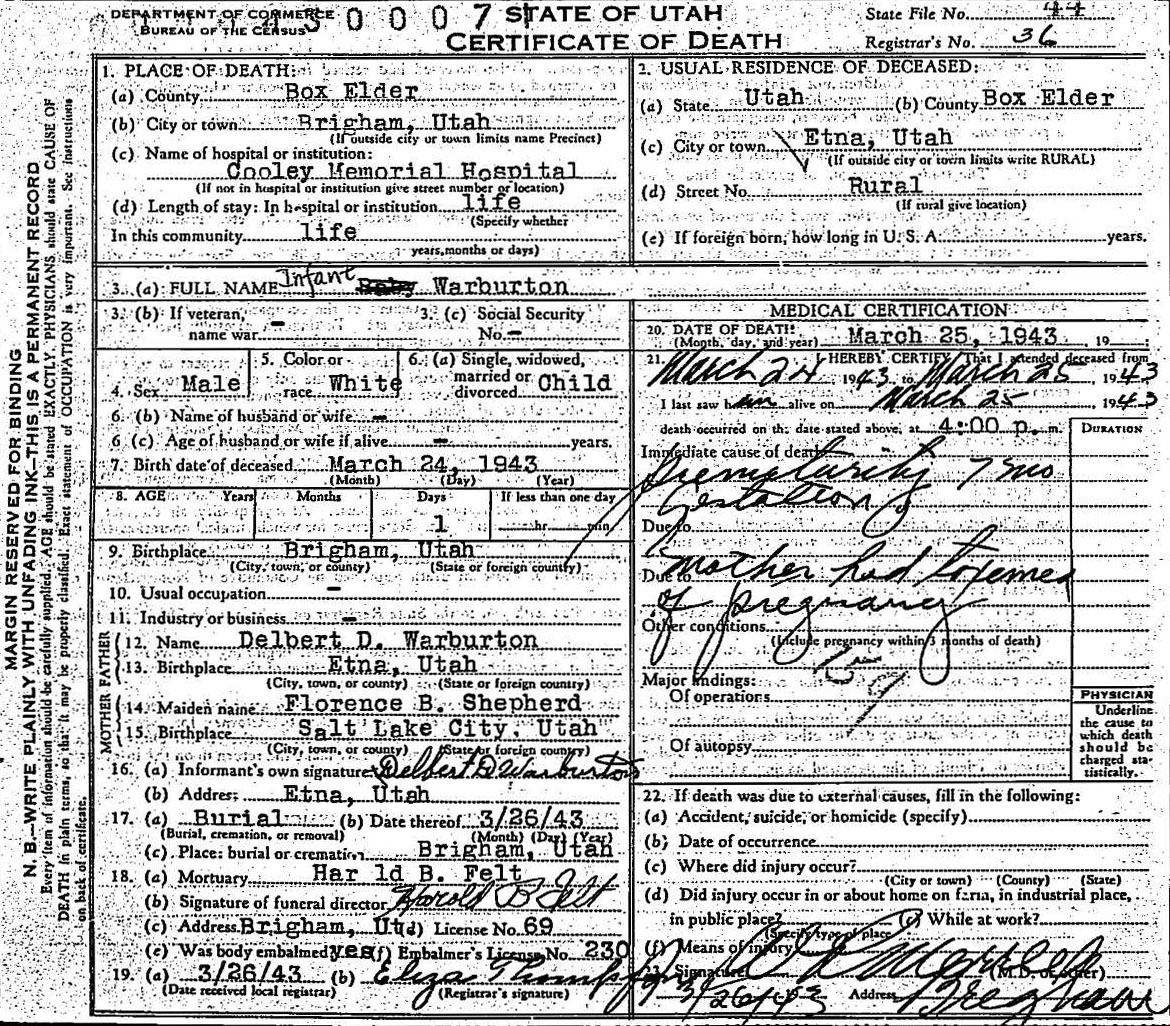 DEPARTMENT OF COMMERCE
BUREAU OF THE CENSUS
0 0 0 7
STATE OF UTAH
CERTIFICATE OF DEATH
State File No. 44
Registrar's No. 36
MARGIN RESERVED FOR BINDING
N. B.—WRITE PLAINLY WITH UNFADING INK—THIS IS A PERMANENT RECORD
Every item of information should be carefully supplied. AGE should be stated EXACTLY. PHYSICIANS should state CAUSE OF
DEATH in plain terms, so that it may be properly classified. Exact statement of OCCUPATION is very important. See instructions
on back of certificate.
1. PLACE OF DEATH:
(a) County Box Elder
(b) City or town Brigham, Utah
(If outside city or town limits name Precinct)
(c) Name of hospital or institution:
Cooley Memorial Hospital
(If not in hospital or institution give street number or location)
(d) Length of stay: In hospital or institution life
(Specify whether
In this community life
years, months or days)
2. USUAL RESIDENCE OF DECEASED:
(a) State Utah (b) County Box Elder
(c) City or town Etna, Utah
(If outside city or town limits write RURAL)
(d) Street No. Rural
(If rural give location)
(e) If foreign born, how long in U. S. A. years.
3. (a) FULL NAME Infant Baby Warburton
3. (b) If veteran,
name war —
3. (c) Social Security
No. —
4. Sex Male
5. Color or
race White
6. (a) Single, widowed,
married or
divorced Child
6. (b) Name of husband or wife —
6 (c) Age of husband or wife if alive — years.
7. Birth date of deceased March 24, 1943
(Month) (Day) (Year)
8. AGE Years Months Days If less than one day
1 hr. min.
9. Birthplace Brigham, Utah
(City, town, or county) (State or foreign country)
10. Usual occupation —
11. Industry or business —
FATHER
12. Name Delbert D. Warburton
13. Birthplace Etna, Utah
(City, town, or county) (State or foreign country)
MOTHER
14. Maiden name Florence B. Shepherd
15. Birthplace Salt Lake City, Utah
(City, town, or county) (State or foreign country)
16. (a) Informant's own signature Delbert D Warburton
(b) Address Etna, Utah
17. (a) Burial (b) Date thereof 3/26/43
(Burial, cremation, or removal) (Month) (Day) (Year)
(c) Place: burial or cremation Brigham, Utah
18. (a) Mortuary Har ld B. Felt
(b) Signature of funeral director Harold B Felt
(c) Address Brigham, Ut (d) License No. 69
(e) Was body embalmed yes (f) Embalmer's License No. 230
19. (a) 3/26/43 (b) Eliza Thompson
(Date received local registrar) (Registrar's signature)
MEDICAL CERTIFICATION
20. DATE OF DEATH: March 25, 1943 , 19
(Month, day, and year)
21. I HEREBY CERTIFY, That I attended deceased from
March 24 1943 to March 25 1943
I last saw him alive on March 25 1943
death occurred on the date stated above, at 4:00 p. m.
DURATION
Immediate cause of death
Prematurity 7 mo
Gestation
Due to
Due to Mother had toxemea
of pregnancy
Other conditions
(Include pregnancy within 3 months of death)
159
Major findings:
Of operations
Of autopsy
PHYSICIAN
Underline
the cause to
which death
should be
charged sta-
tistically.
22. If death was due to external causes, fill in the following:
(a) Accident, suicide, or homicide (specify)
(b) Date of occurrence
(c) Where did injury occur?
(City or town) (County) (State)
(d) Did injury occur in or about home on farm, in industrial place,
in public place? (e) While at work?
(Specify type of place
(f) Means of injury
23. Signature (M.D. or other)
3/26/43 Address Brigham